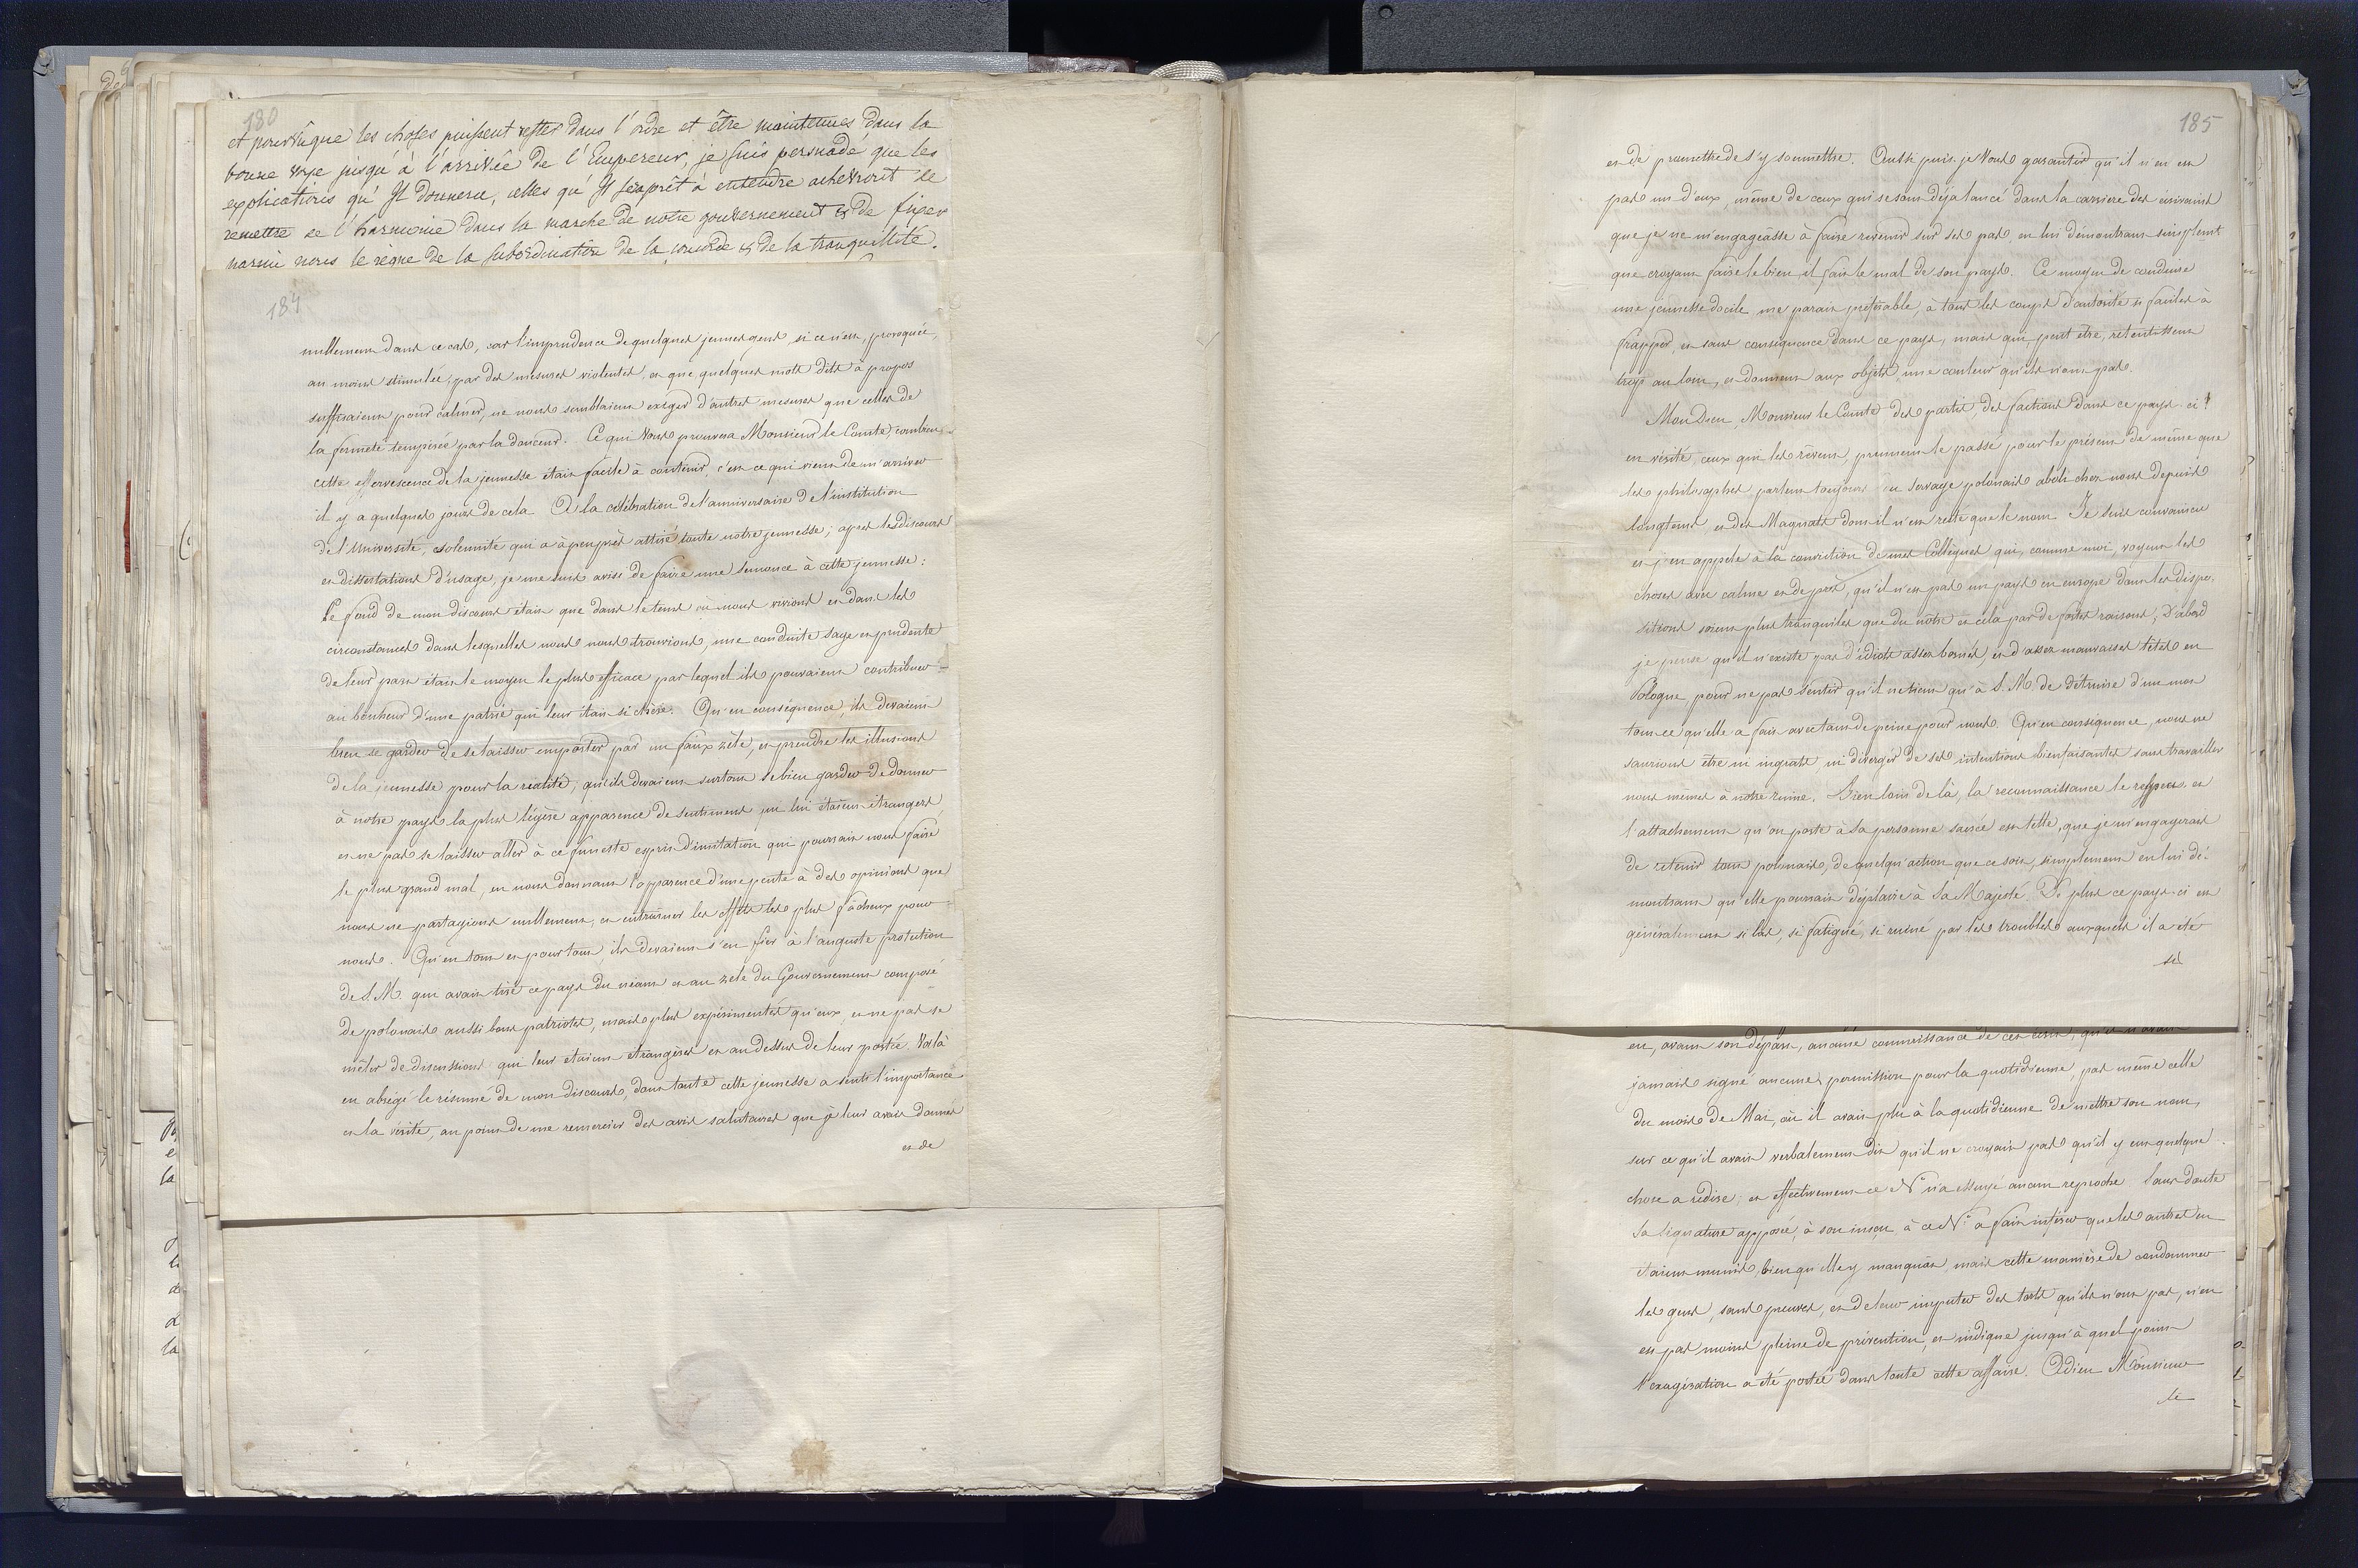 180
et pourvûque les choses puissent rester dans l'ordre et être maintenues dans la
bonne voye jusqu'à l'arrivée de l'Empereur, je suis persuadé que les
explications qu'Il donnera, celles qu'Il est prêt à entendre acheveront de
remettre de l'harmonie dans la marche de notre gouvernement & de fixer
parmi nous le règne de la subordination de la concorde & de la tranquillité.
184
nullement dans ce cas, car l'imprudence de quelques jeunes gens, si ce n'est, provoquée,
au moins stimulée, par des mesures violentes, et que quelques mots dits à propos
suffisaient pour calmer, ne nous semblaient exiger d'autres mesures que celles de
la fermeté tempérée par la douceur. Ce qui Vous prouvera Monsieur le Comte, combien
cette effervescence de la jeunesse était facile à contenir, c'est ce qui vient de m'arriver
il y a quelques jours de cela. A la célébration de l'anniversaire de l'institution
de l'Université, solennité qui a à peu près attiré toute notre jeunesse; après les discours
et dissertations d'usage, je me suis avisé de faire une semonce à cette jeunesse:
Le fond de mon discours était que dans le tems où nous vivions et dans les
circonstances dans lesquelles nous nous trouvions, une conduite sage et prudente
de leur part était le moyen le plus efficace par lequel ils pouvaient contribuer
au bonheur d'une patrie qui leur était si chère. Qu'en conséquence, ils devaient
bien se garder de se laisser emporter par un faux zèle, et prendre les illusions
de la jeunesse pour la réalité, qu'ils devaient surtout se bien garder de donner
à notre pays la plus légère apparence de sentimens qui lui étaient étrangers,
et ne pas se laisser aller à ce funeste esprit d'imitation qui pourrait nous faire
le plus grand mal, en nous donnant l'apparence d'une pente à des opinions que
nous ne partagions nullement, et entraîner les effets les plus fâcheux pour
nous. Qu'en tout et pour tout, ils devaient s'en fier à l'auguste protection
de S. M. qui avait tiré ce pays du néant et au zèle du Gouvernement composé
de polonais aussi bons patriotes, mais plus expérimentés qu'eux, et ne pas se
mêler de discussions qui leur étaient étrangères et au dessus de leur portée. Voilà
en abrégé le résumé de mon discours, dont toute cette jeunesse a senti l'importance
et la vérité, au point de me remercier des avis salutaires que je leur avais donnés
et de
185
et de promettre de s'y soumettre. Aussi puis-je Vous garantir qu'il n'en est
pas un d'eux, même de ceux qui se sont déjà lancé dans la carriere des écrivains
que je ne m'engageasse à faire revenir sur ses pas, en lui démontrant simplement
que croyant faire le bien, il fait le mal de son pays. Ce moyen de conduire
une jeunesse docile, me parait préférable à tous les coups d'autorité si faciles à
frapper, et sans conséquence dans ce pays, mais qui peut être, retentissent
trop au loin, et donnent aux objets une couleur qu'ils n'ont pas.
Mon Dieu, Monsieur le Comte des partis, des factions dans ce pays-ci!
en vérité, ceux qui les rêvent, prennent le passé pour le présent de même que
les philosophes parlent toujours du servage polonais aboli chez nous depuis
longtems, et des Magnats dont il n'est resté que le nom. Je suis convaincu
et j'en appele à la conviction de mes Collègues qui, comme moi, voyent les
choses avec calme et de près, qu'il n'est pas un pays en europe dont les dispo-
sitions soient plus tranquiles que du nôtre et cela par de fortes raisons; D'abord
je pense qu'il n'existe pas d'idiots assez bornés, et d'assez mauvaises têtes en
Pologne, pour ne pas sentir qu'il ne tient qu'à S. M. de détruire d'un mot
tout ce qu'elle a fait avec tant de peine pour nous. Qu'en conséquence, nous ne
saurions être ni ingrats, ni diverger de ses intentions bienfaisantes sans travailler
nous mêmes à notre ruine. Bien loin de là, la reconnaissance le respect et
l'attachement qu'on porte à sa personne sacrée est telle, que je m'engagerais
de retenir tout polonais, de quelqu'action que ce soit, simplement en lui dé-
montrant qu'elle pourrait déplaire à Sa Majesté. De plus ce pays-ci est
généralement si las, si fatigué, si ruiné par les troubles auxquels il a été
eu, avant son départ, aucune connaissance de ces
jamais signé aucune permission pour la quotidienne, pas même celle
du mois de Mai, où il avait plu à la quotidienne de mettre son nom,
sur ce qu'il avait verbalement dit qu'il ne croyait pas qu'il y eut quelque
chose a redire; et effectivement ce N° n'a essuyé aucun reproche. Sans doute
sa signature apposée, à son insçu à ce N° a fait inférer que les autres en
étaient munis, bien qu'elle y manquât, mais cette manière de condamner
les gens, sans preuves, et de leur imputer des torts qu'ils n'ont pas, n'en
est pas moins pleine de prévention, et indique jusqu'à quel point
l'exagération a été portée dans toute cette affaire. Adieu Monsieur
le